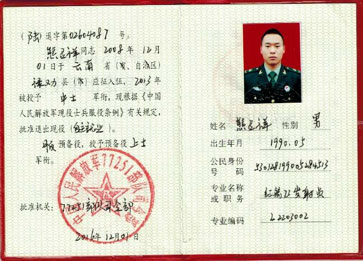 (陆)退字第02604087号。
同志2008年12月
01日于云南省(市、自治区)
县(市)应征入伍,2013年
被授予中士军衔。现根据《中国
人民解放军现役士兵服役条例》有关规定,
批准退出现役()
服预备役,授予预备役上士
军衔。
批准机关:77251部队司令部
2016年12月01日
中国人民解放军77251部队司令部
姓名 性别 男
出生年月 1990.05
公民身份
号码
专业名称
或职务
专业编码 L2203002